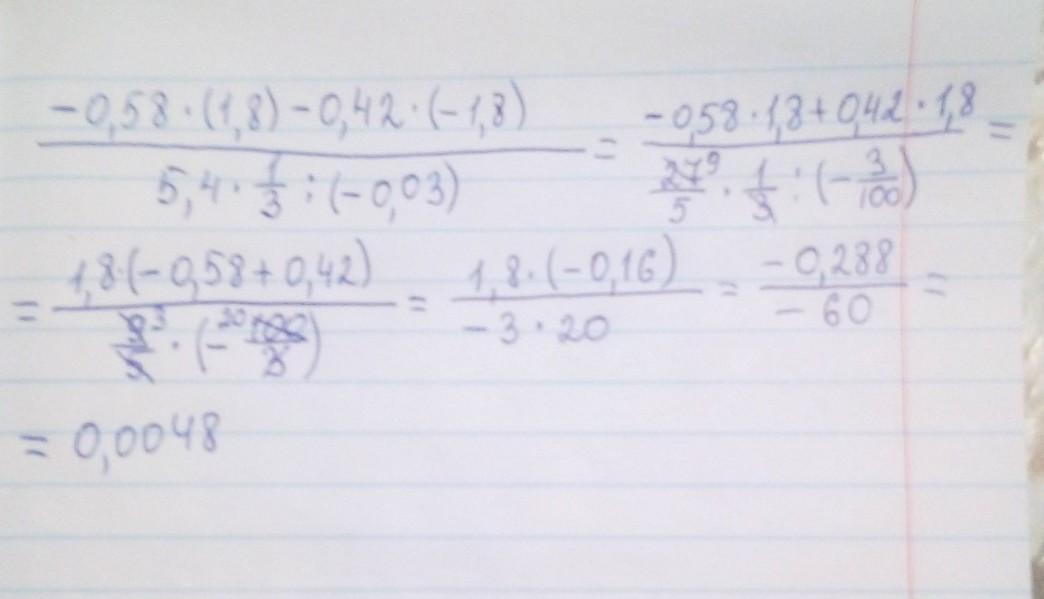 \frac{-0,58 \cdot (1,8) - 0,42 \cdot (-1,8)}{5,4 \cdot \frac{1}{3} : (-0,03)} = \frac{-0,58 \cdot 1,8 + 0,42 \cdot 1,8}{\frac{\cancel{27}^{9}}{5} \cdot \frac{1}{\cancel{3}} : (-\frac{3}{100})} =
= \frac{1,8 \cdot (-0,58 + 0,42)}{\frac{\cancel{9}^{3}}{\cancel{5}} \cdot (-\frac{^{20}\cancel{100}}{\cancel{3}})} = \frac{1,8 \cdot (-0,16)}{-3 \cdot 20} = \frac{-0,288}{-60} =
= 0,0048